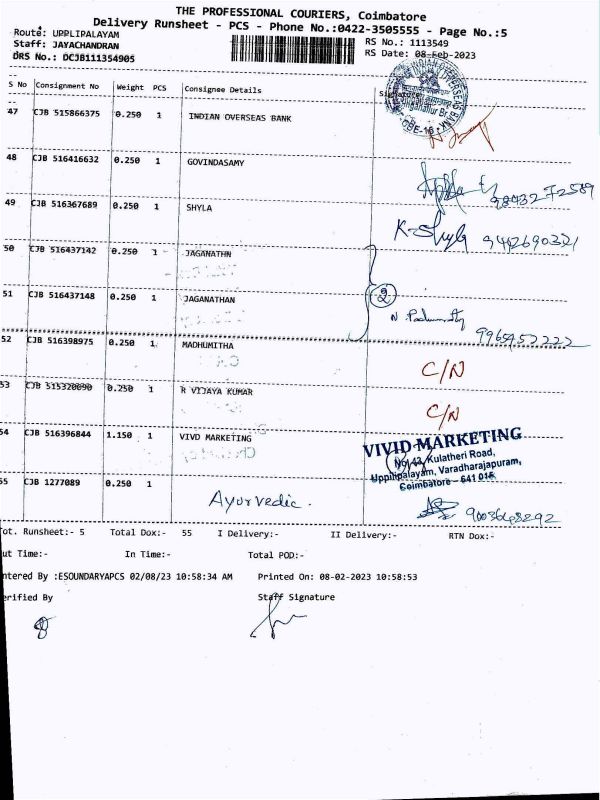 THE PROFESSIONAL COURIERS, Coimbatore
Delivery Runsheet - PCS - Phone No.:0422-3505555 - Page No.:5
Route: UPPLIPALAYAM
RS No.: 1113549
Staff: JAYACHANDRAN
RS Date: 08-Feb-2023
DRS No.: DCJB111354905
S No Consignment No Weight PCS Consignee Details Signature
47 CJB 515866375 0.250 1 INDIAN OVERSEAS BANK
48 CJB 516416632 0.250 1 GOVINDASAMY
49 CJB 516367689 0.250 1 SHYLA K. Shyla 9442690321
50 CJB 516437142 0.250 1 JAGANATHN
51 CJB 516437148 0.250 1 JAGANATHAN 2
52 CJB 516398975 0.250 1 MADHUMITHA C/N
53 CJB 515320090 0.250 1 R VIJAYA KUMAR C/N
54 CJB 516396844 1.150 1 VIVD MARKETING
VIVID MARKETING
No. 43, Kulatheri Road,
Uppilipalayam, Varadharajapuram,
Coimbatore - 641 015
55 CJB 1277089 0.250 1 Ayurvedic.
Tot. Runsheet:- 5 Total Dox:- 55 I Delivery:- II Delivery:- RTN Dox:-
ut Time:- In Time:- Total POD:-
ntered By :ESOUNDARYAPCS 02/08/23 10:58:34 AM Printed On: 08-02-2023 10:58:53
erified By Staff Signature